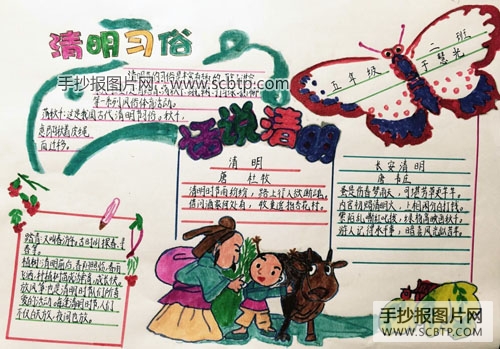 清明习俗
清明节的习俗是丰富有趣的
第一系列风俗体育活动。
荡秋千:这是我国古代清明节习俗。秋千,
意为揪着皮绳
而迁移。
手抄报图片网
www.scbtp.com
五年级
二班
于慧光
话说清明
清明
唐 杜牧
清明时节雨纷纷,路上行人欲断魂。
借问酒家何处有,牧童遥指杏花村。
长安清明
唐 韦庄
蚤是伤春梦雨天,可堪芳草更芊芊。
内官初赐清明火,上相闲分白打钱。
紫陌乱嘶红叱拨,绿杨高映画秋千。
游人记得承平事,暗喜风光似昔年。
踏青:又叫春游。古时叫探春、寻
春等。
植树:清明前后,春阳照临,春雨
飞洒,种植树苗成活率高,成长快。
放风筝:也是清明时节人们所喜
爱的活动。每逢清明时节,人们
不仅白天放,夜间也放。
手抄报图片网
WWW.SCBTP.COM